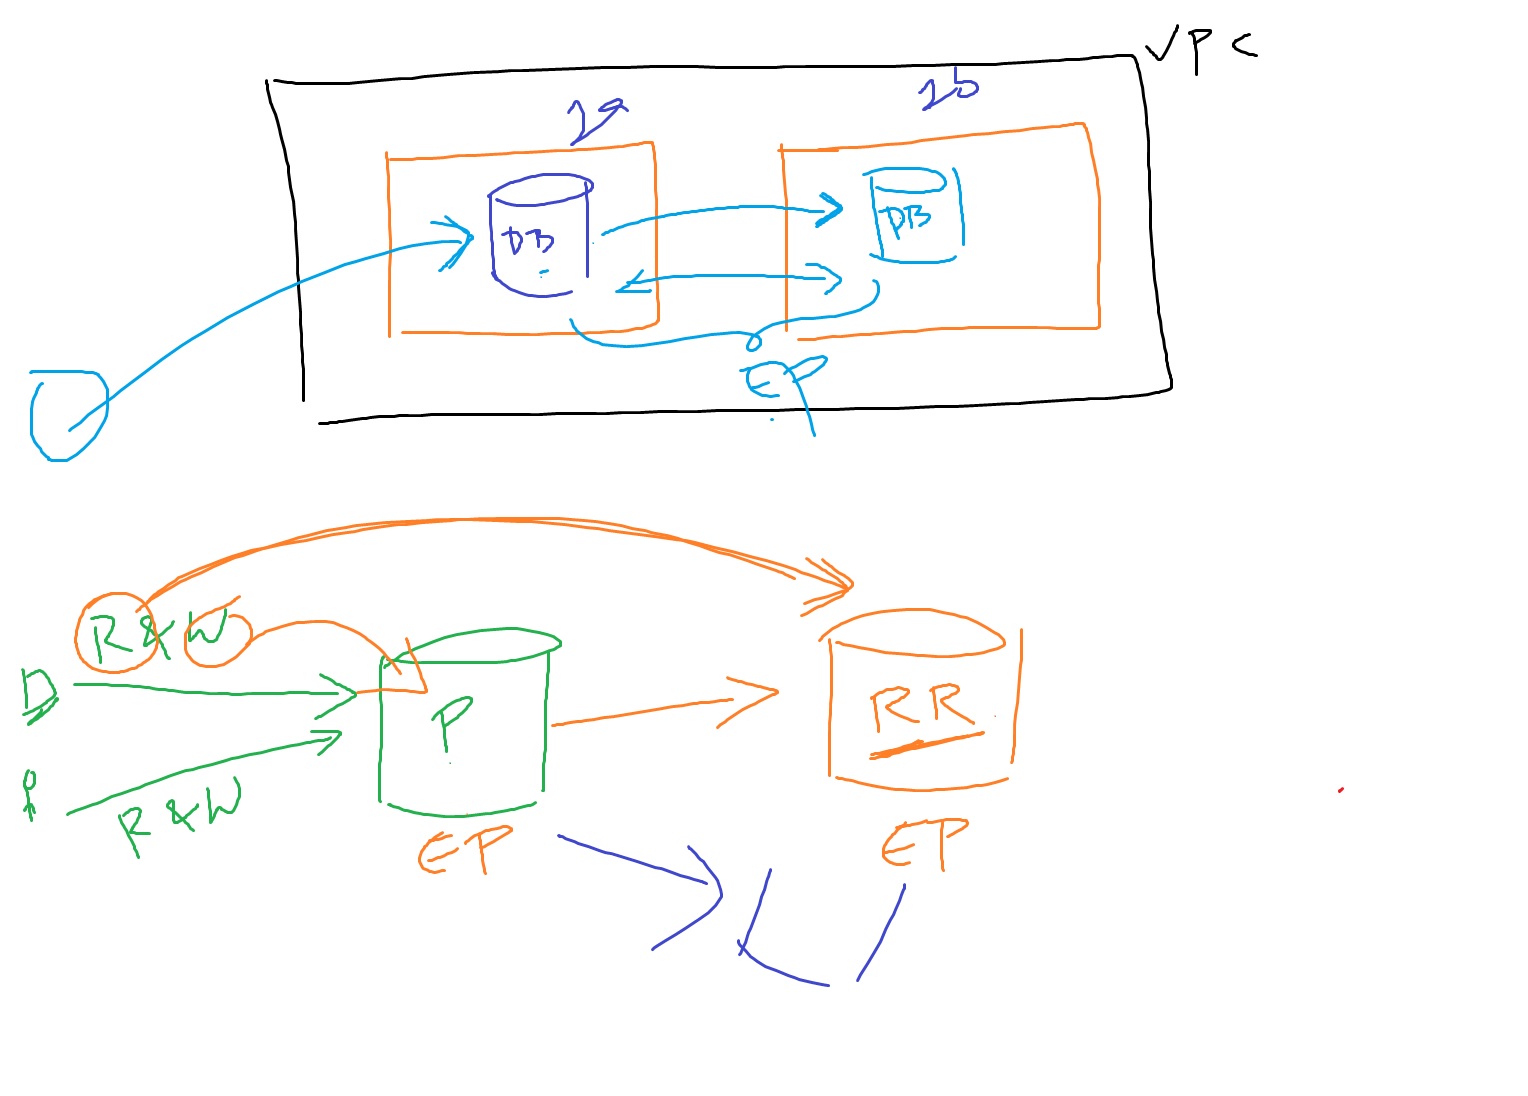 VPC
1a
1b
DB
DB
EP
R&W
D
P
RR
R&W
EP
EP